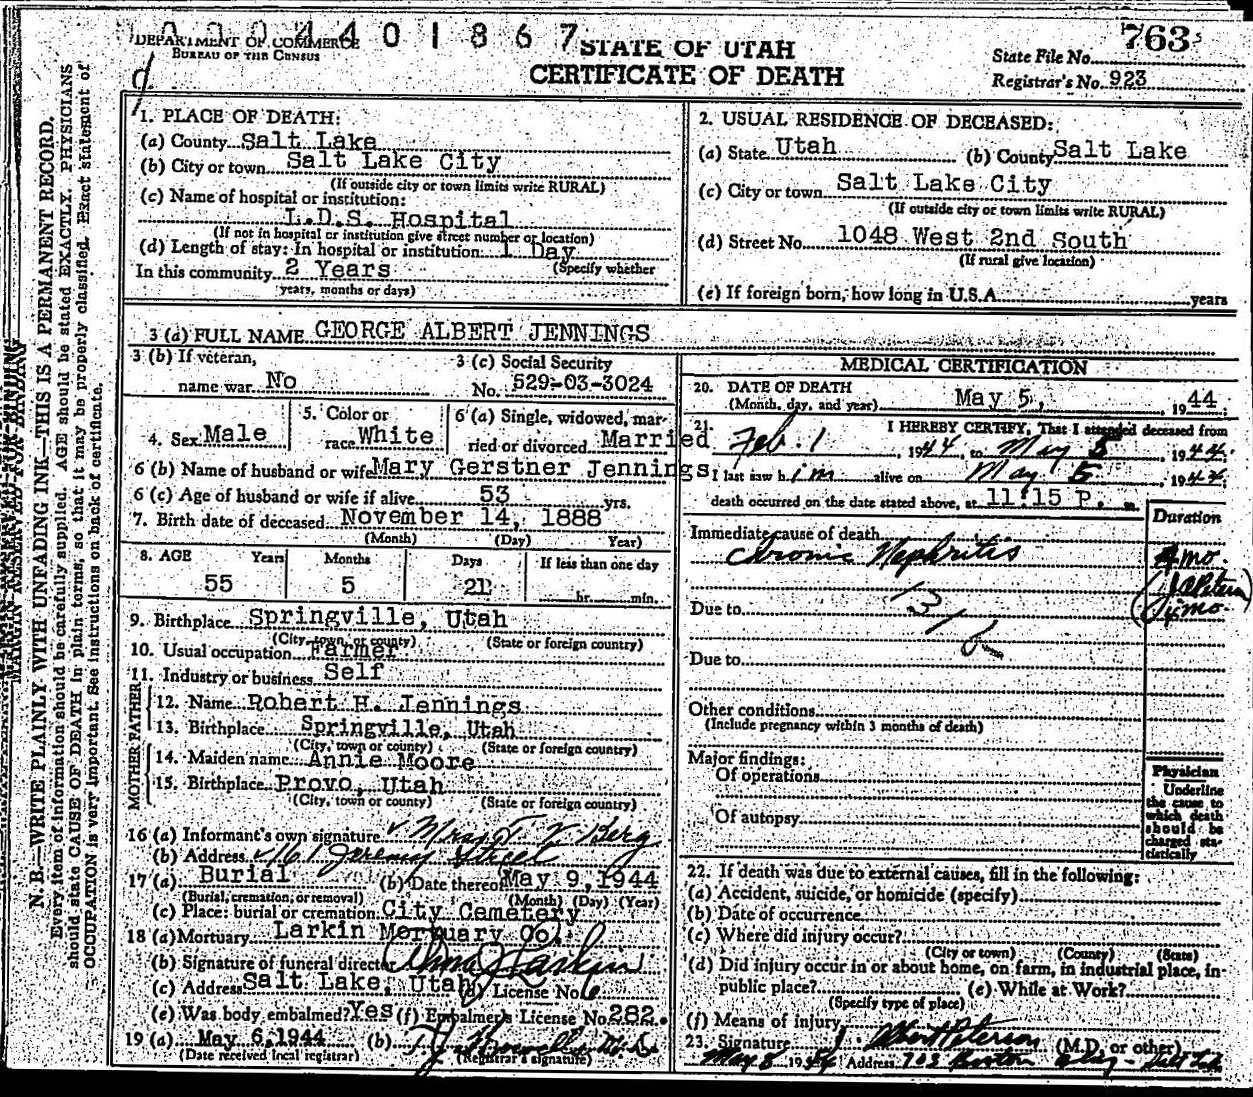 0 0 0 4 4 0 1 8 6 7
DEPARTMENT OF COMMERCE
BUREAU OF THE CENSUS
STATE OF UTAH
CERTIFICATE OF DEATH
State File No. 763
Registrar's No. 923
MARGIN RESERVED FOR BINDING
N. B.—WRITE PLAINLY WITH UNFADING INK—THIS IS A PERMANENT RECORD.
Every item of information should be carefully supplied. AGE should be stated EXACTLY. PHYSICIANS
should state CAUSE OF DEATH in plain terms, so that it may be properly classified. Exact statement of
OCCUPATION is very important. See instructions on back of certificate.
1. PLACE OF DEATH:
(a) County Salt Lake
(b) City or town Salt Lake City
(If outside city or town limits write RURAL)
(c) Name of hospital or institution:
L.D.S. Hospital
(If not in hospital or institution give street number or location)
(d) Length of stay: In hospital or institution 1 Day
(Specify whether
In this community 2 Years
years, months or days)
2. USUAL RESIDENCE OF DECEASED:
(a) State Utah (b) County Salt Lake
(c) City or town Salt Lake City
(If outside city or town limits write RURAL)
(d) Street No. 1048 West 2nd South
(If rural give location)
(e) If foreign born, how long in U.S.A. years
3 (a) FULL NAME GEORGE ALBERT JENNINGS
3 (b) If veteran,
name war No
3 (c) Social Security
No. 529-03-3024
4. Sex Male
5. Color or
race White
6 (a) Single, widowed, mar-
ried or divorced Married
6 (b) Name of husband or wife Mary Gerstner Jennings
6 (c) Age of husband or wife if alive 53 yrs.
7. Birth date of deceased November 14, 1888
(Month) (Day) Year)
8. AGE Years Months Days If less than one day
55 5 21 hr. min.
9. Birthplace Springville, Utah
(City, town, or county) (State or foreign country)
10. Usual occupation Farmer
11. Industry or business Self
FATHER
12. Name Robert H. Jennings
13. Birthplace Springville, Utah
(City, town or county) (State or foreign country)
MOTHER
14. Maiden name Annie Moore
15. Birthplace Provo, Utah
(City, town or county) (State or foreign country)
16 (a) Informant's own signature Mrs. T. V. Berg
(b) Address 161 Jeremy Street
17 (a) Burial (b) Date thereof May 9, 1944
(Burial, cremation, or removal) (Month) (Day) (Year)
(c) Place: burial or cremation City Cemetery
18 (a) Mortuary Larkin Mortuary Co.
(b) Signature of funeral director Alma J Larkin
(c) Address Salt Lake, Utah (d) License No. 6
(e) Was body embalmed? Yes (f) Embalmer's License No. 282.
19 (a) May 6, 1944 (b) T. J. Howells M.D.
(Date received local registrar) (Registrar's signature)
MEDICAL CERTIFICATION
20. DATE OF DEATH
(Month, day, and year) May 5, , 1944
21. I HEREBY CERTIFY, That I attended deceased from
Feb. 1 , 1944, to May 5 , 1944.
I last saw h im alive on May 5 , 1944,
death occurred on the date stated above, at 11:15 P. m.
Duration
Immediate cause of death
Chronic Nephritis 4 mo.
Due to 131 4 mo.
Due to
Other conditions
(Include pregnancy within 3 months of death)
Major findings:
Of operations
Of autopsy
Physician
Underline
the cause to
which death
should be
charged sta-
tistically
22. If death was due to external causes, fill in the following:
(a) Accident, suicide, or homicide (specify)
(b) Date of occurrence
(c) Where did injury occur?
(City or town) (County) (State)
(d) Did injury occur in or about home, on farm, in industrial place, in-
public place? (e) While at Work?
(Specify type of place)
(f) Means of injury
23. Signature J. Albert Peterson (M.D. or other)
May 8 1944 Address 703 Boston Bldg - Salt Lake